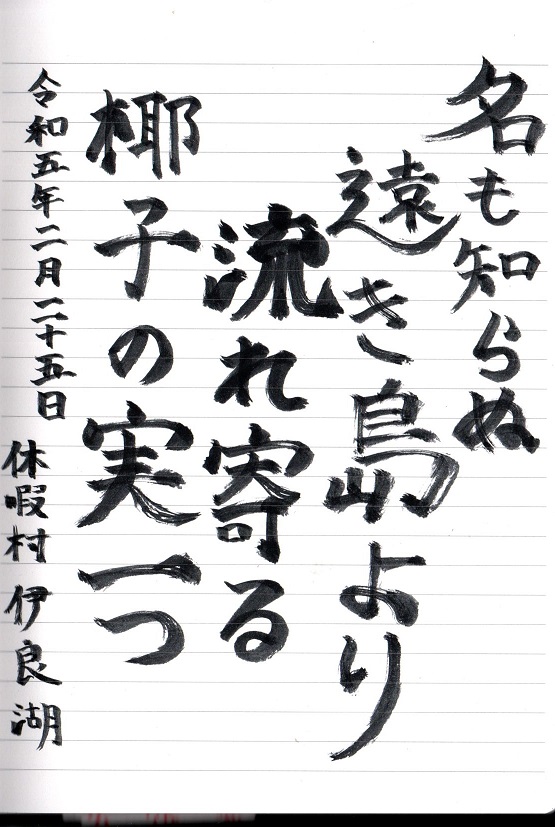 名も知らぬ
遠き島より
流れ寄る
椰子の実一つ
令和五年二月二十五日 休暇村 伊良湖